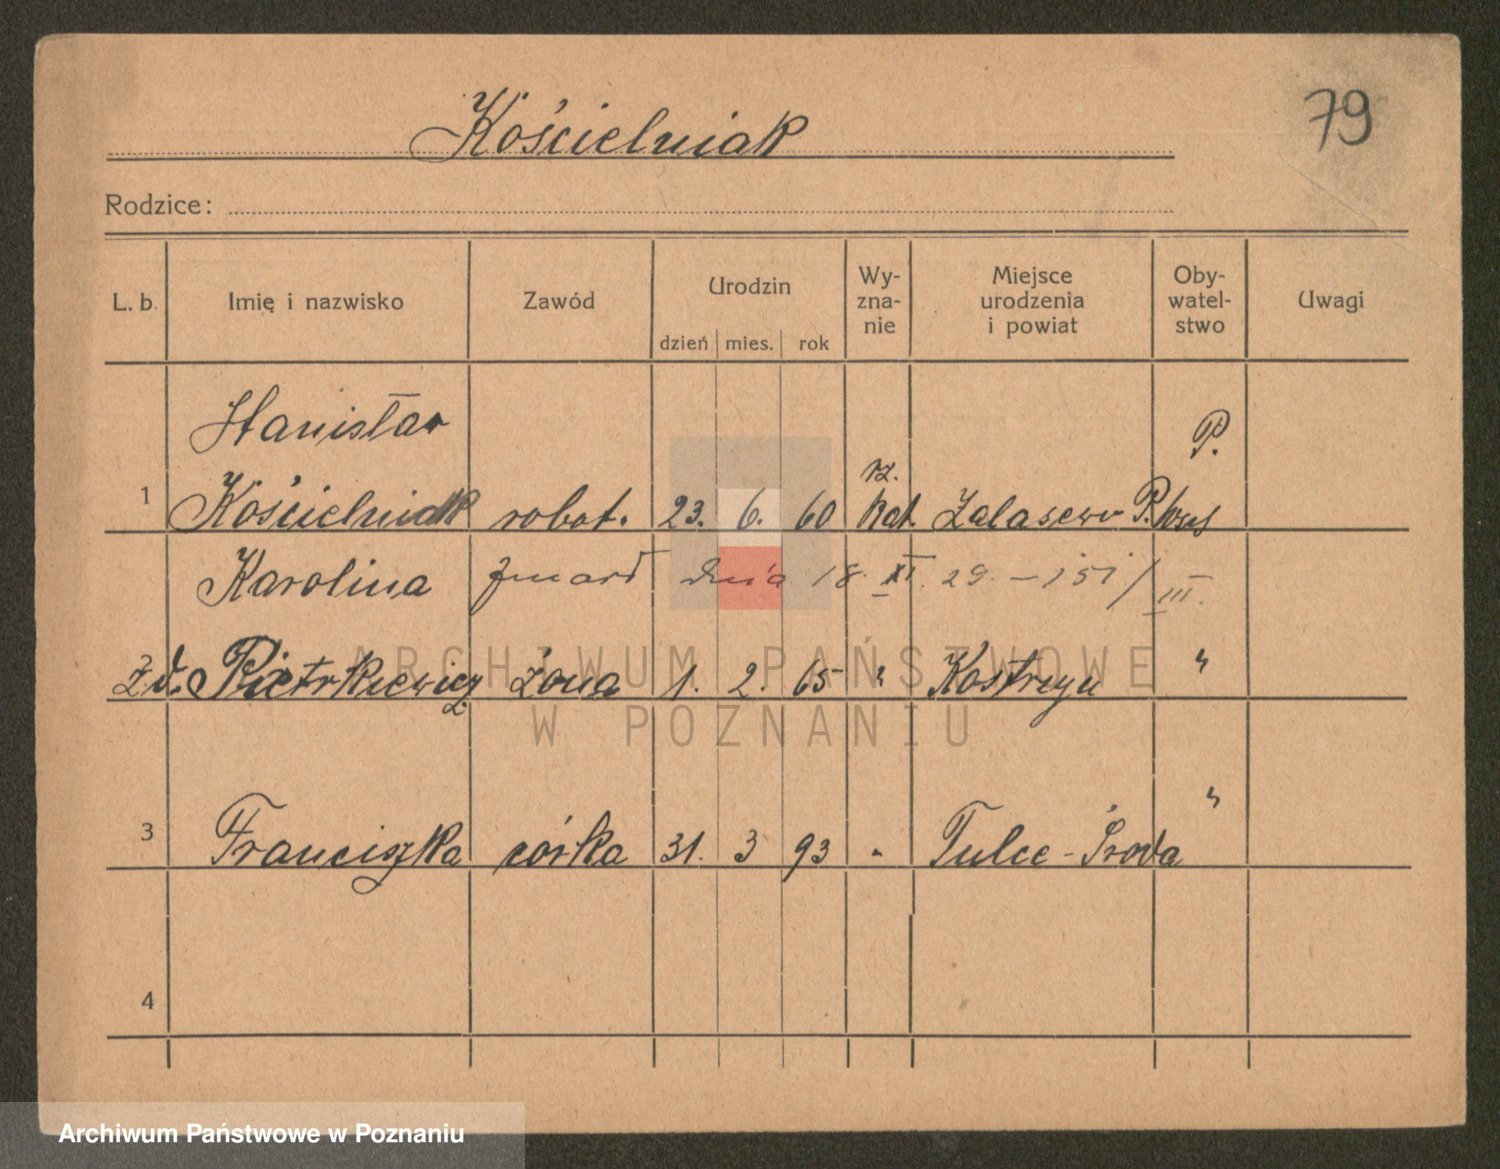 79
Kościelniak
Rodzice:
L. b. Imię i nazwisko Zawód Urodzin dzień mies. rok Wy- zna- nie Miejsce urodzenia i powiat Oby- watel- stwo Uwagi
Stanisław P.
rz.
1 Kościelniak robot. 23. 6. 60 kat. Zalasewo P.
Karolina zmarł dnia 18. XI. 29. – 151/III.
2 zd. Pietrkiewicz żona 1. 2. 65 " Kostrzyn "
3 Franciszka córka 31. 3 93 " Tulce - Środa "
4
ARCHIWUM PAŃSTWOWE
W POZNANIU
Archiwum Państwowe w Poznaniu